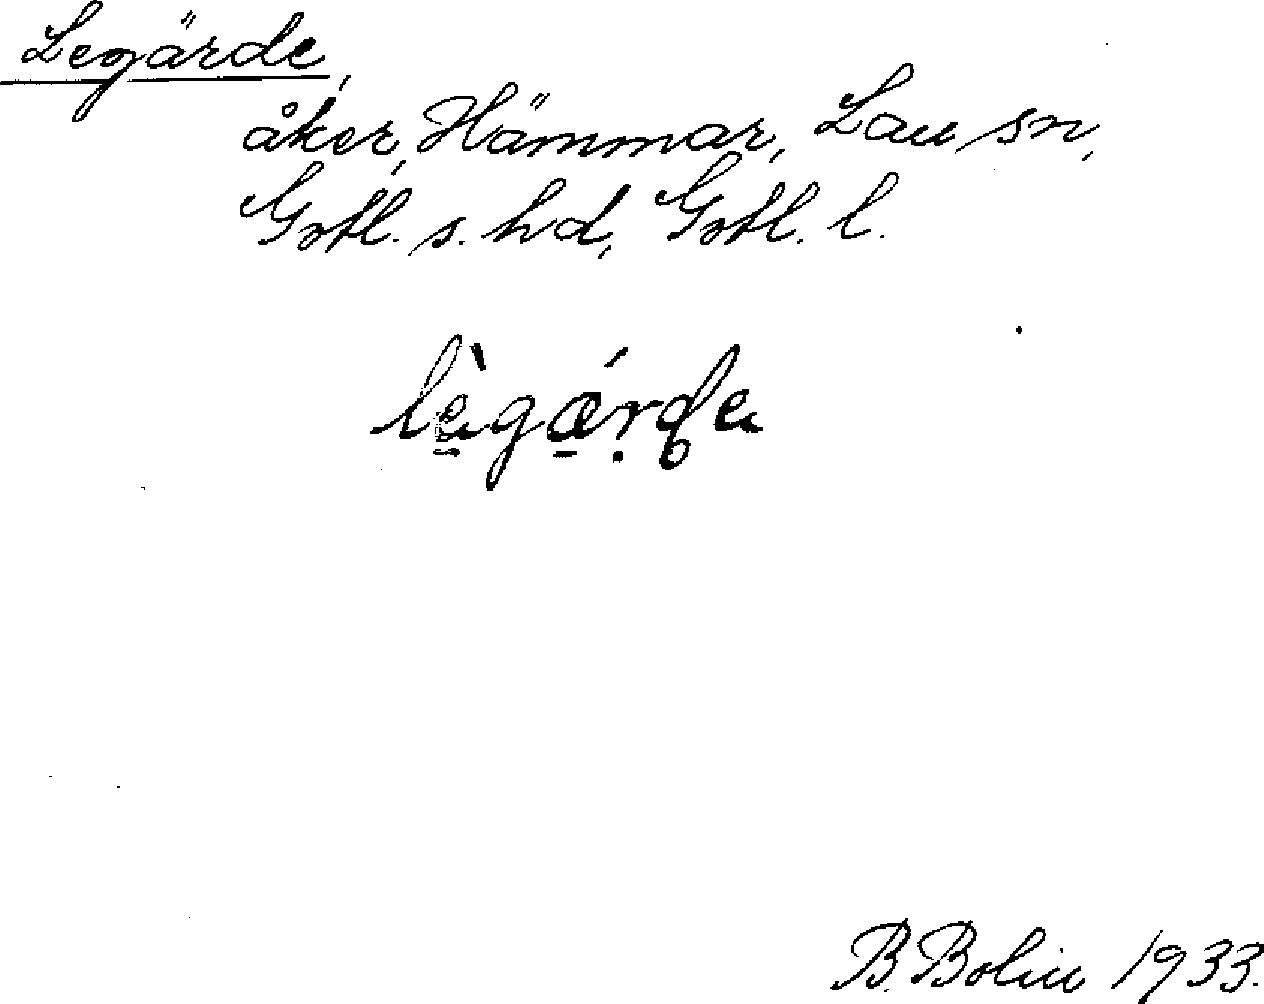 Legärde,
åker, Hämmar, Lau sn,
Gotl. s. hd, Gotl. l.
lè̱gǽ̱ṛɖe
B. Bolin 1933.